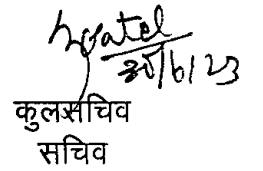 30/6/23
कुलसचिव
सचिव